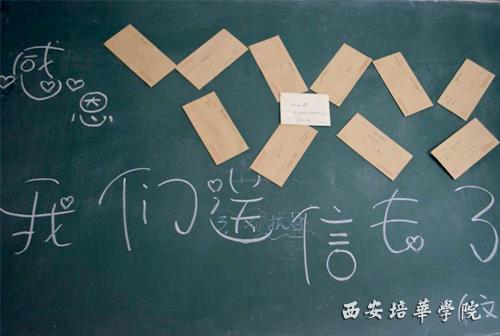 感
恩
我们送信去了
西安培華學院